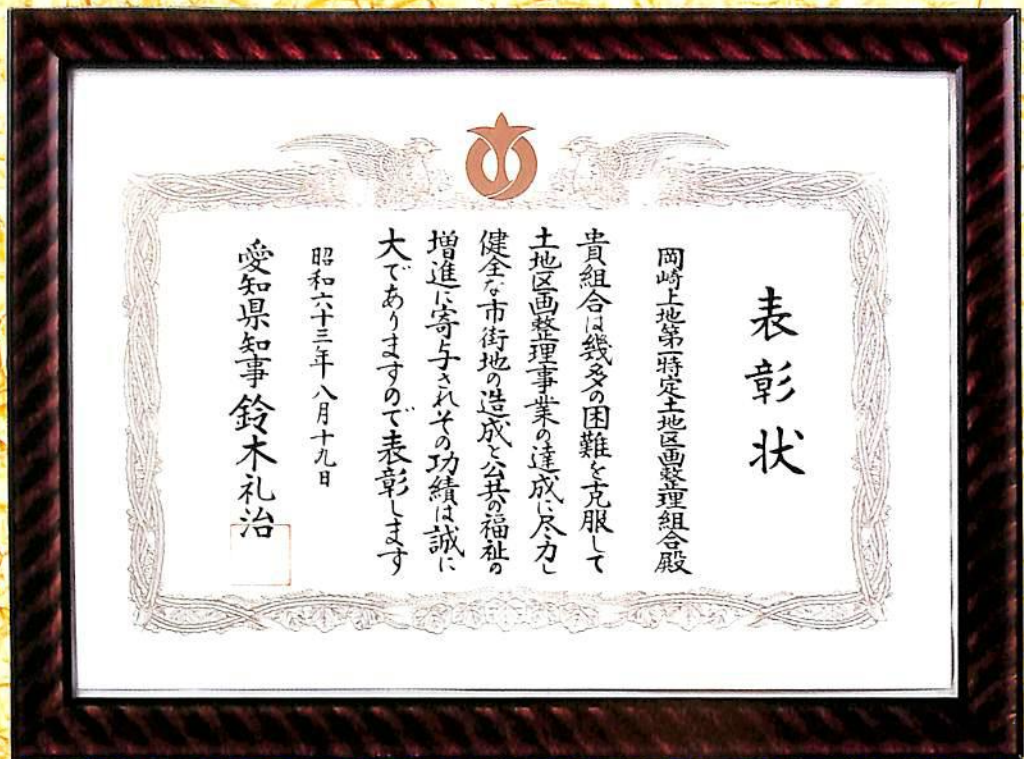 表彰状
岡崎上地第一特定土地区画整理組合殿
貴組合は幾多の困難を克服して
土地区画整理事業の達成に尽力し
健全な市街地の造成と公共の福祉の
増進に寄与されその功績は誠に
大でありますので表彰します
昭和六十三年八月十九日
愛知県知事 鈴木礼治